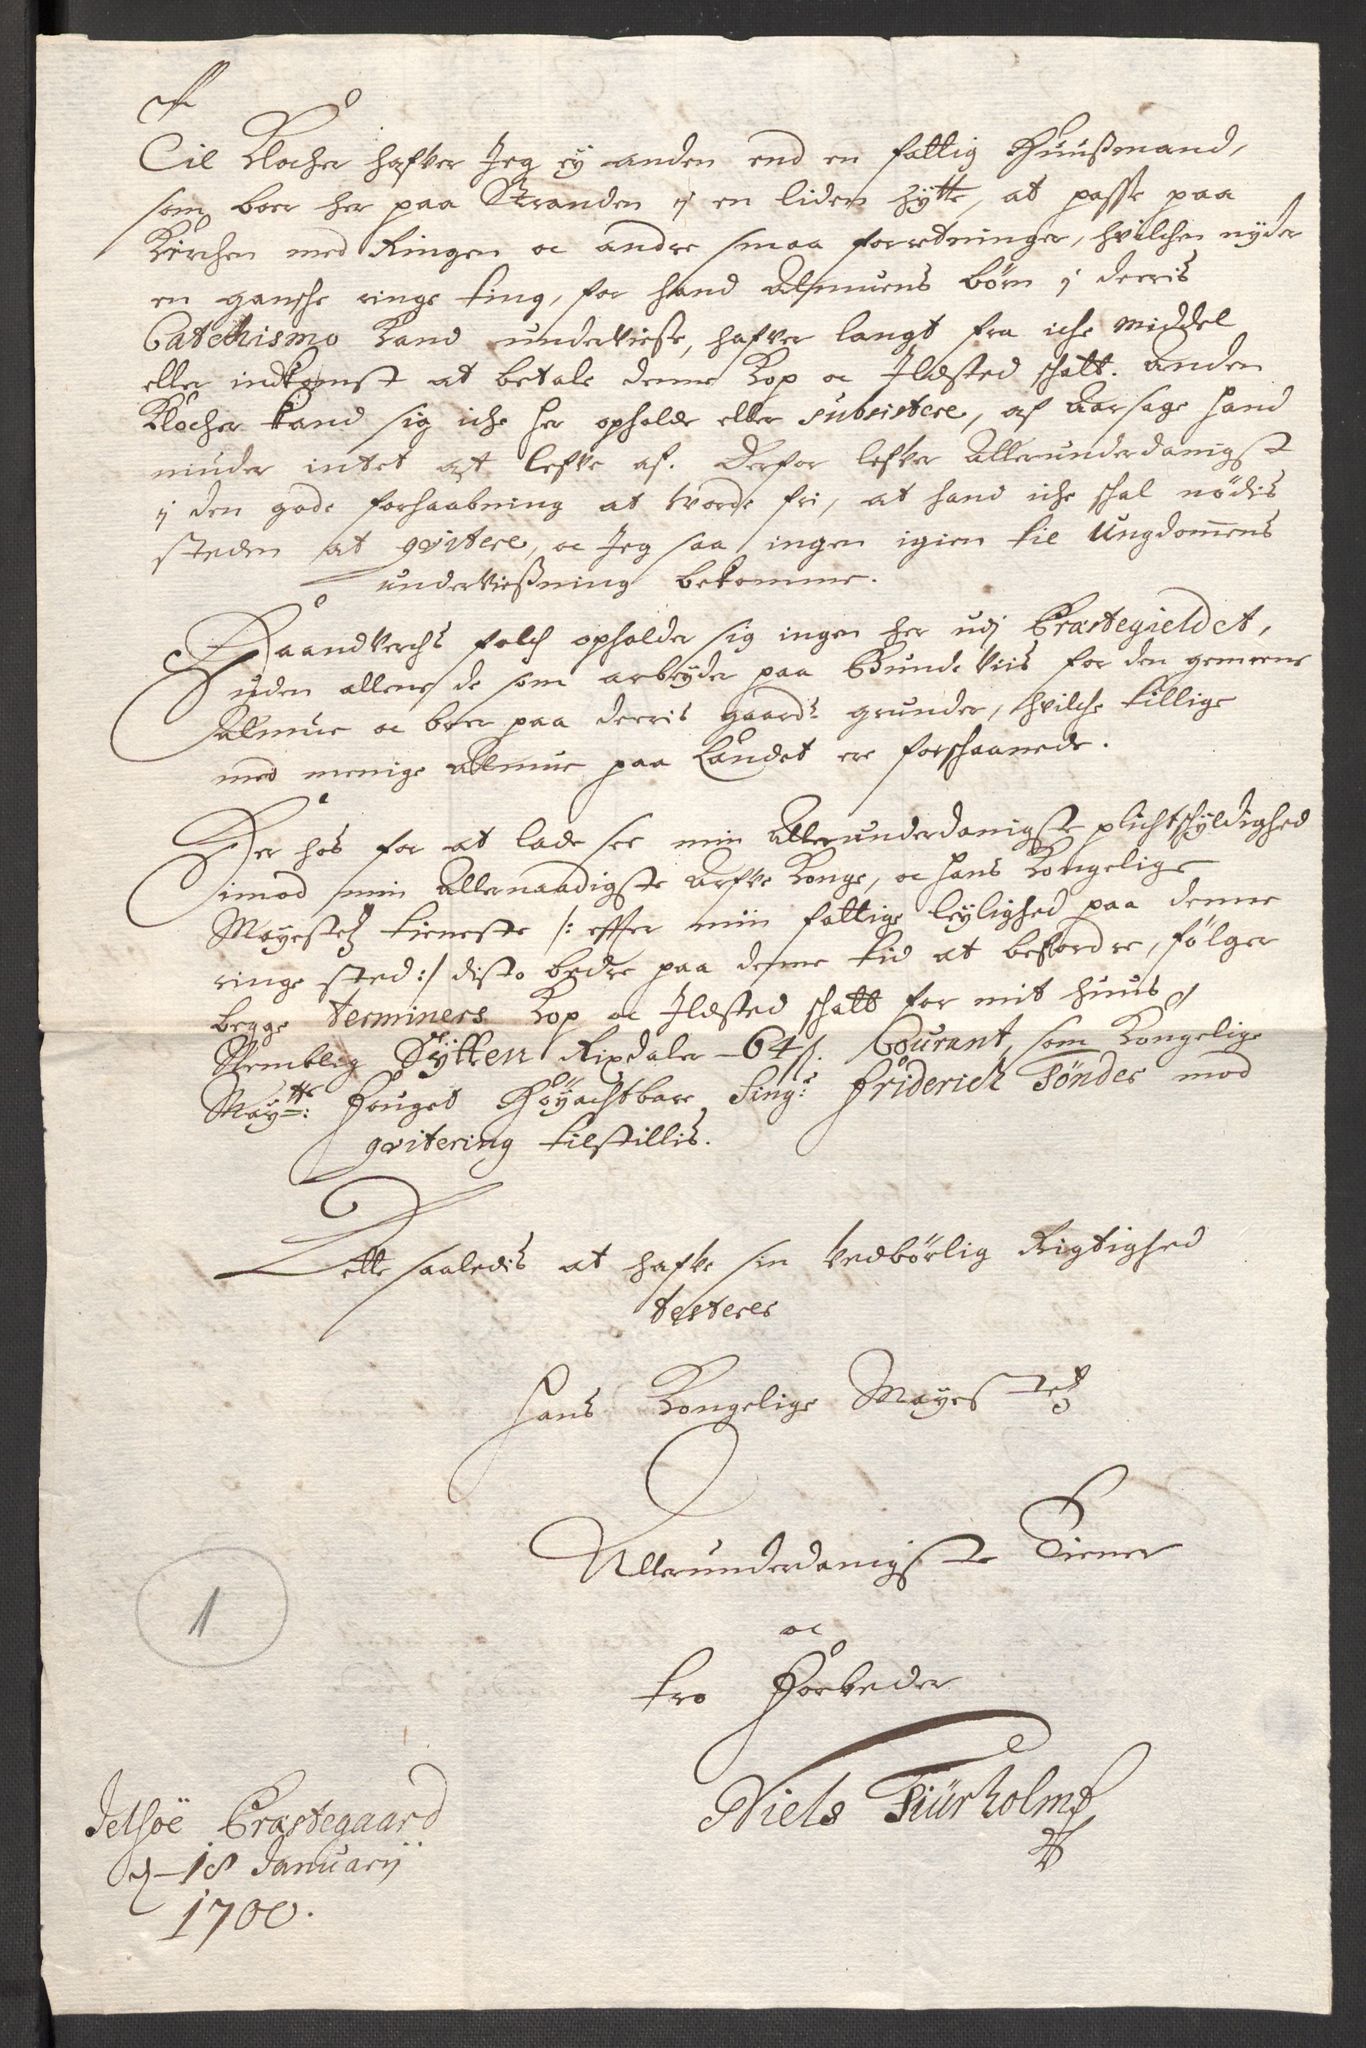 Til Klocher hafver Jeg ey anden end en fattig Huußmand,
som boer her paa Stranden ij en liden hytte, at passe paa
Kirchen med Ringen oc andre smaa forretninger, hvilchen nyder
en gansche ringe ting, for hand Almuens børn ij deeris
Catechismo kand undervise, hafver langt fra iche middel
eller indkomst at betale denne Kop oc Ildsted schatt. Anden
Klocher kand sig iche her opholde eller subsistere, af Aarsage hand
niuder intet at lefve af. Derfor lefver Allerunderdanigst
ij den gode forhaabning at vorde fri, at hand iche schal nødis
steden at qvitere, oc Jeg saa ingen igien til Ungdommens
undervießning bekomme.
Haandverchs folch opholder sig ingen her udj Præstegieldet,
uden allene de som arbeyder paa Bunde viis for den gemeene
Almue oc boer paa deeris gaards grunder, hvilche tillige
med menige Almue paa Landet ere forschaanede.
Der hos for at lade see min Allerunderdanigste plichtschyldighed
imod min Allernaadigste Arfve Konge, oc Hans Kongelige
Mayestetz tieneste /: efter min fattige leylighed paa denne
ringe sted :/ disto bedre paa denne tid at befordre, følger
begge terminers Kop oc Ildsted schatt for mit huus
Nemblig Sytten Rixdaler 64 s. Courant, som Kongelige
Maytts: Fouget Høyachtbare Sing:r Friderich Tønder mod
qvitering tilstillis.
Dette saaledis at hafve sin vedbørlig Rigtighed
testeres
Hans Kongelige Mayestetz
Allerunderdanigste Tiener
oc
tro Forbeder
Niels Tiurholm
Jelsøe Præstegaard
d. 18 January
1700.
1